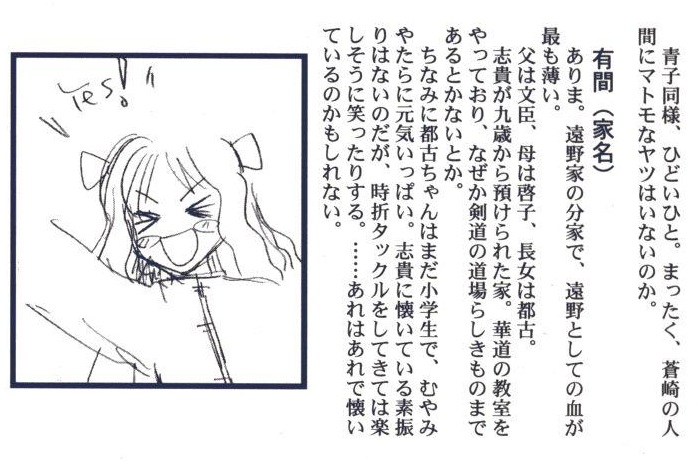 青子同様、ひどいひと。まったく、蒼崎の人
間にマトモなヤツはいないのか。
有間（家名）
ありま。遠野家の分家で、遠野としての血が
最も薄い。
父は文臣、母は啓子、長女は都古。
志貴が九歳から預けられた家。華道の教室を
やっており、なぜか剣道の道場らしきものまで
あるとかないとか。
ちなみに都古ちゃんはまだ小学生で、むやみ
やたらに元気いっぱい。志貴に懐いている素振
りはないのだが、時折タックルをしてきては楽
しそうに笑ったりする。……あれはあれで懐い
ているのかもしれない。
Yes!